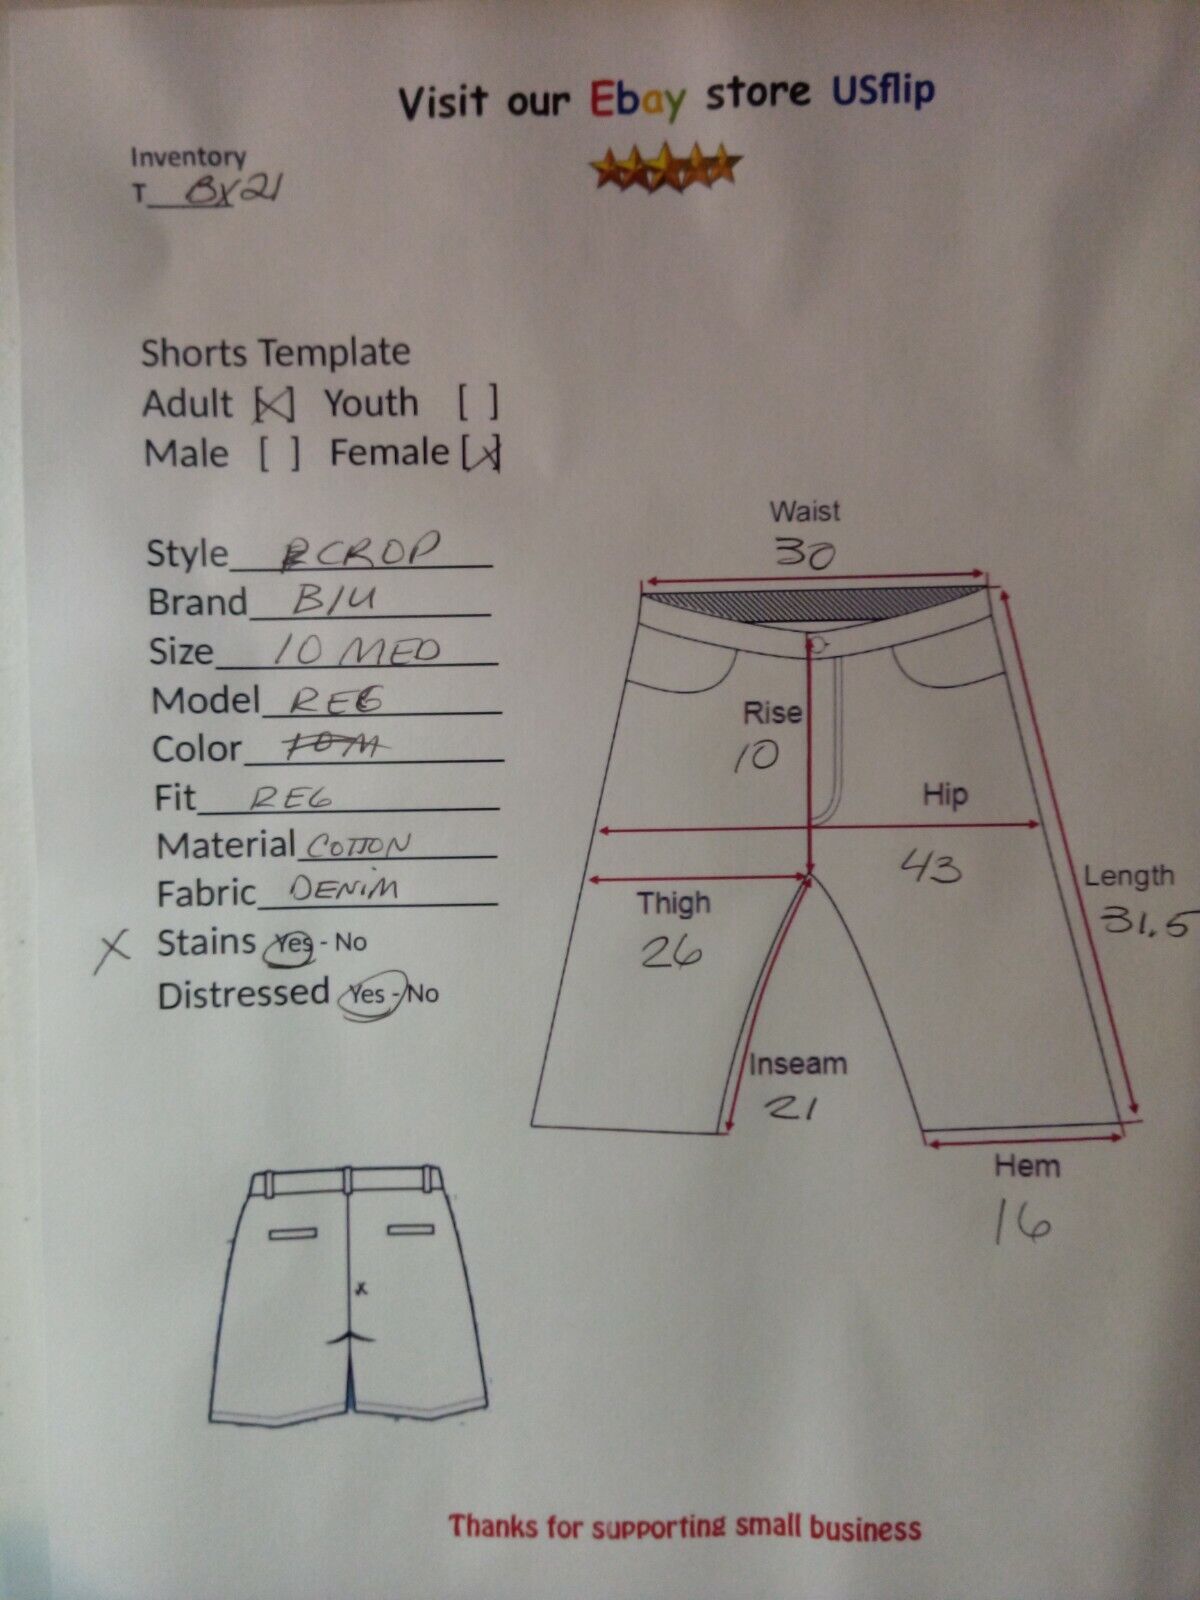 Visit our Ebay store USflip
Inventory
T BX21
Shorts Template
Adult [X] Youth [ ]
Male [ ] Female [X]
Style CROP
Brand B/U
Size 10 MED
Model REG
Color 10M
Fit REG
Material COTTON
Fabric DENIM
X Stains Yes - No
Distressed Yes - No
Waist
30
Rise
10
Hip
43
Thigh
26
Length
31.5
Inseam
21
Hem
16
x
Thanks for supporting small business